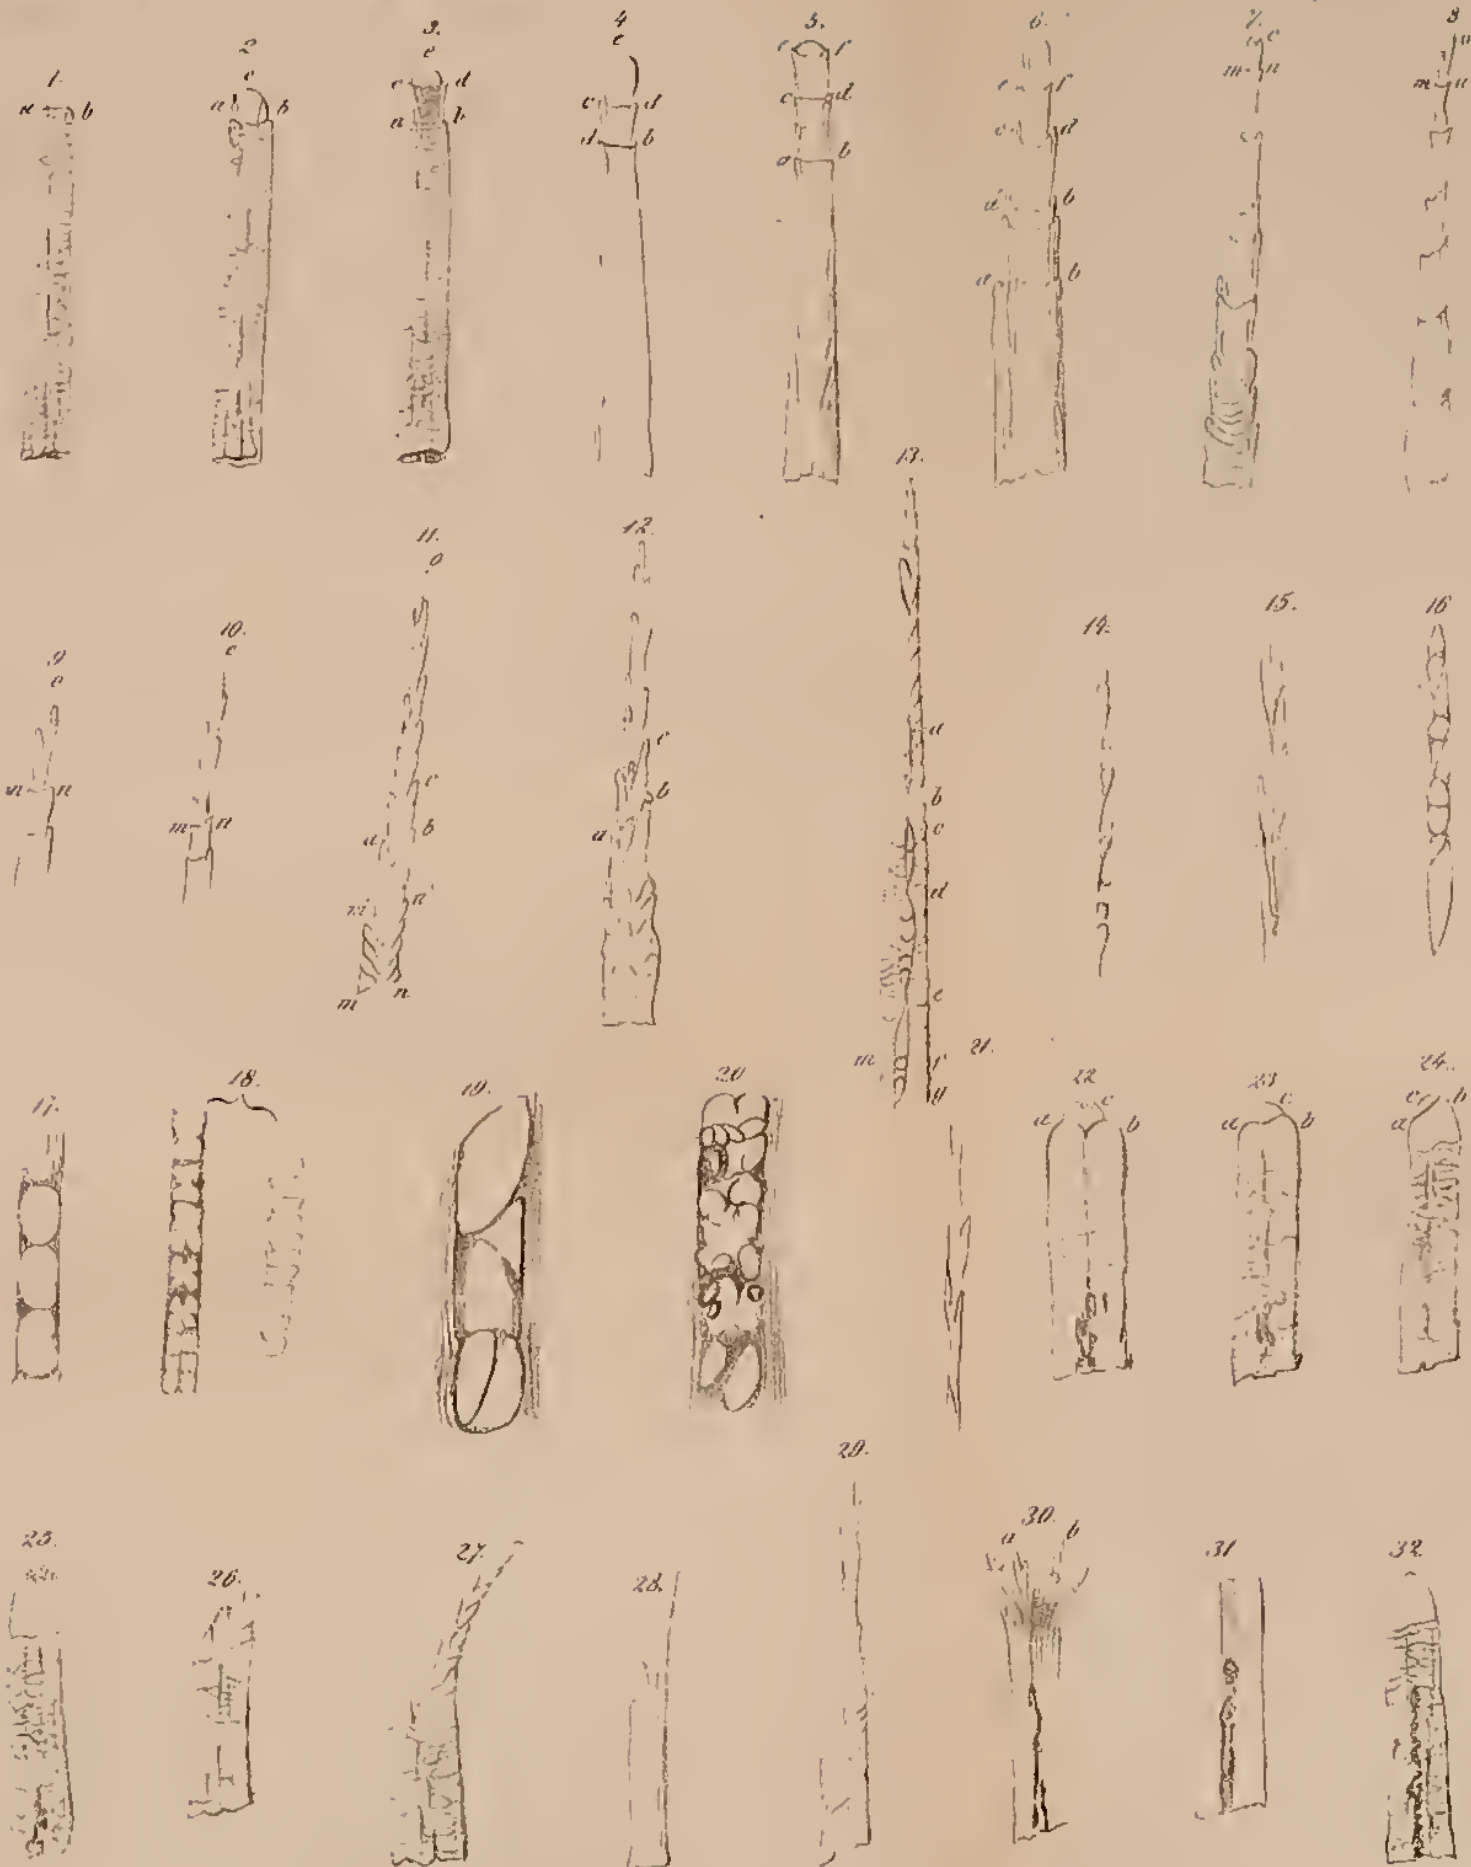 1.
a b
2
c
a b
3.
e
c d
a b
4
e
c d
d b
5.
e f
c d
a b
6.
e f
c d
a b
a b
7.
c
m n
8
o
m n
9
e
m n
10.
c
m n
11.
o
c
a b
m' n'
m n
12.
c
b
a
13.
a
b
c
d
e
m f
g
14.
15.
16
17.
18.
19.
20
21.
22
a c b
23
a c b
24.
a c b
25.
26.
27.
28.
29.
30.
a b
31
32.